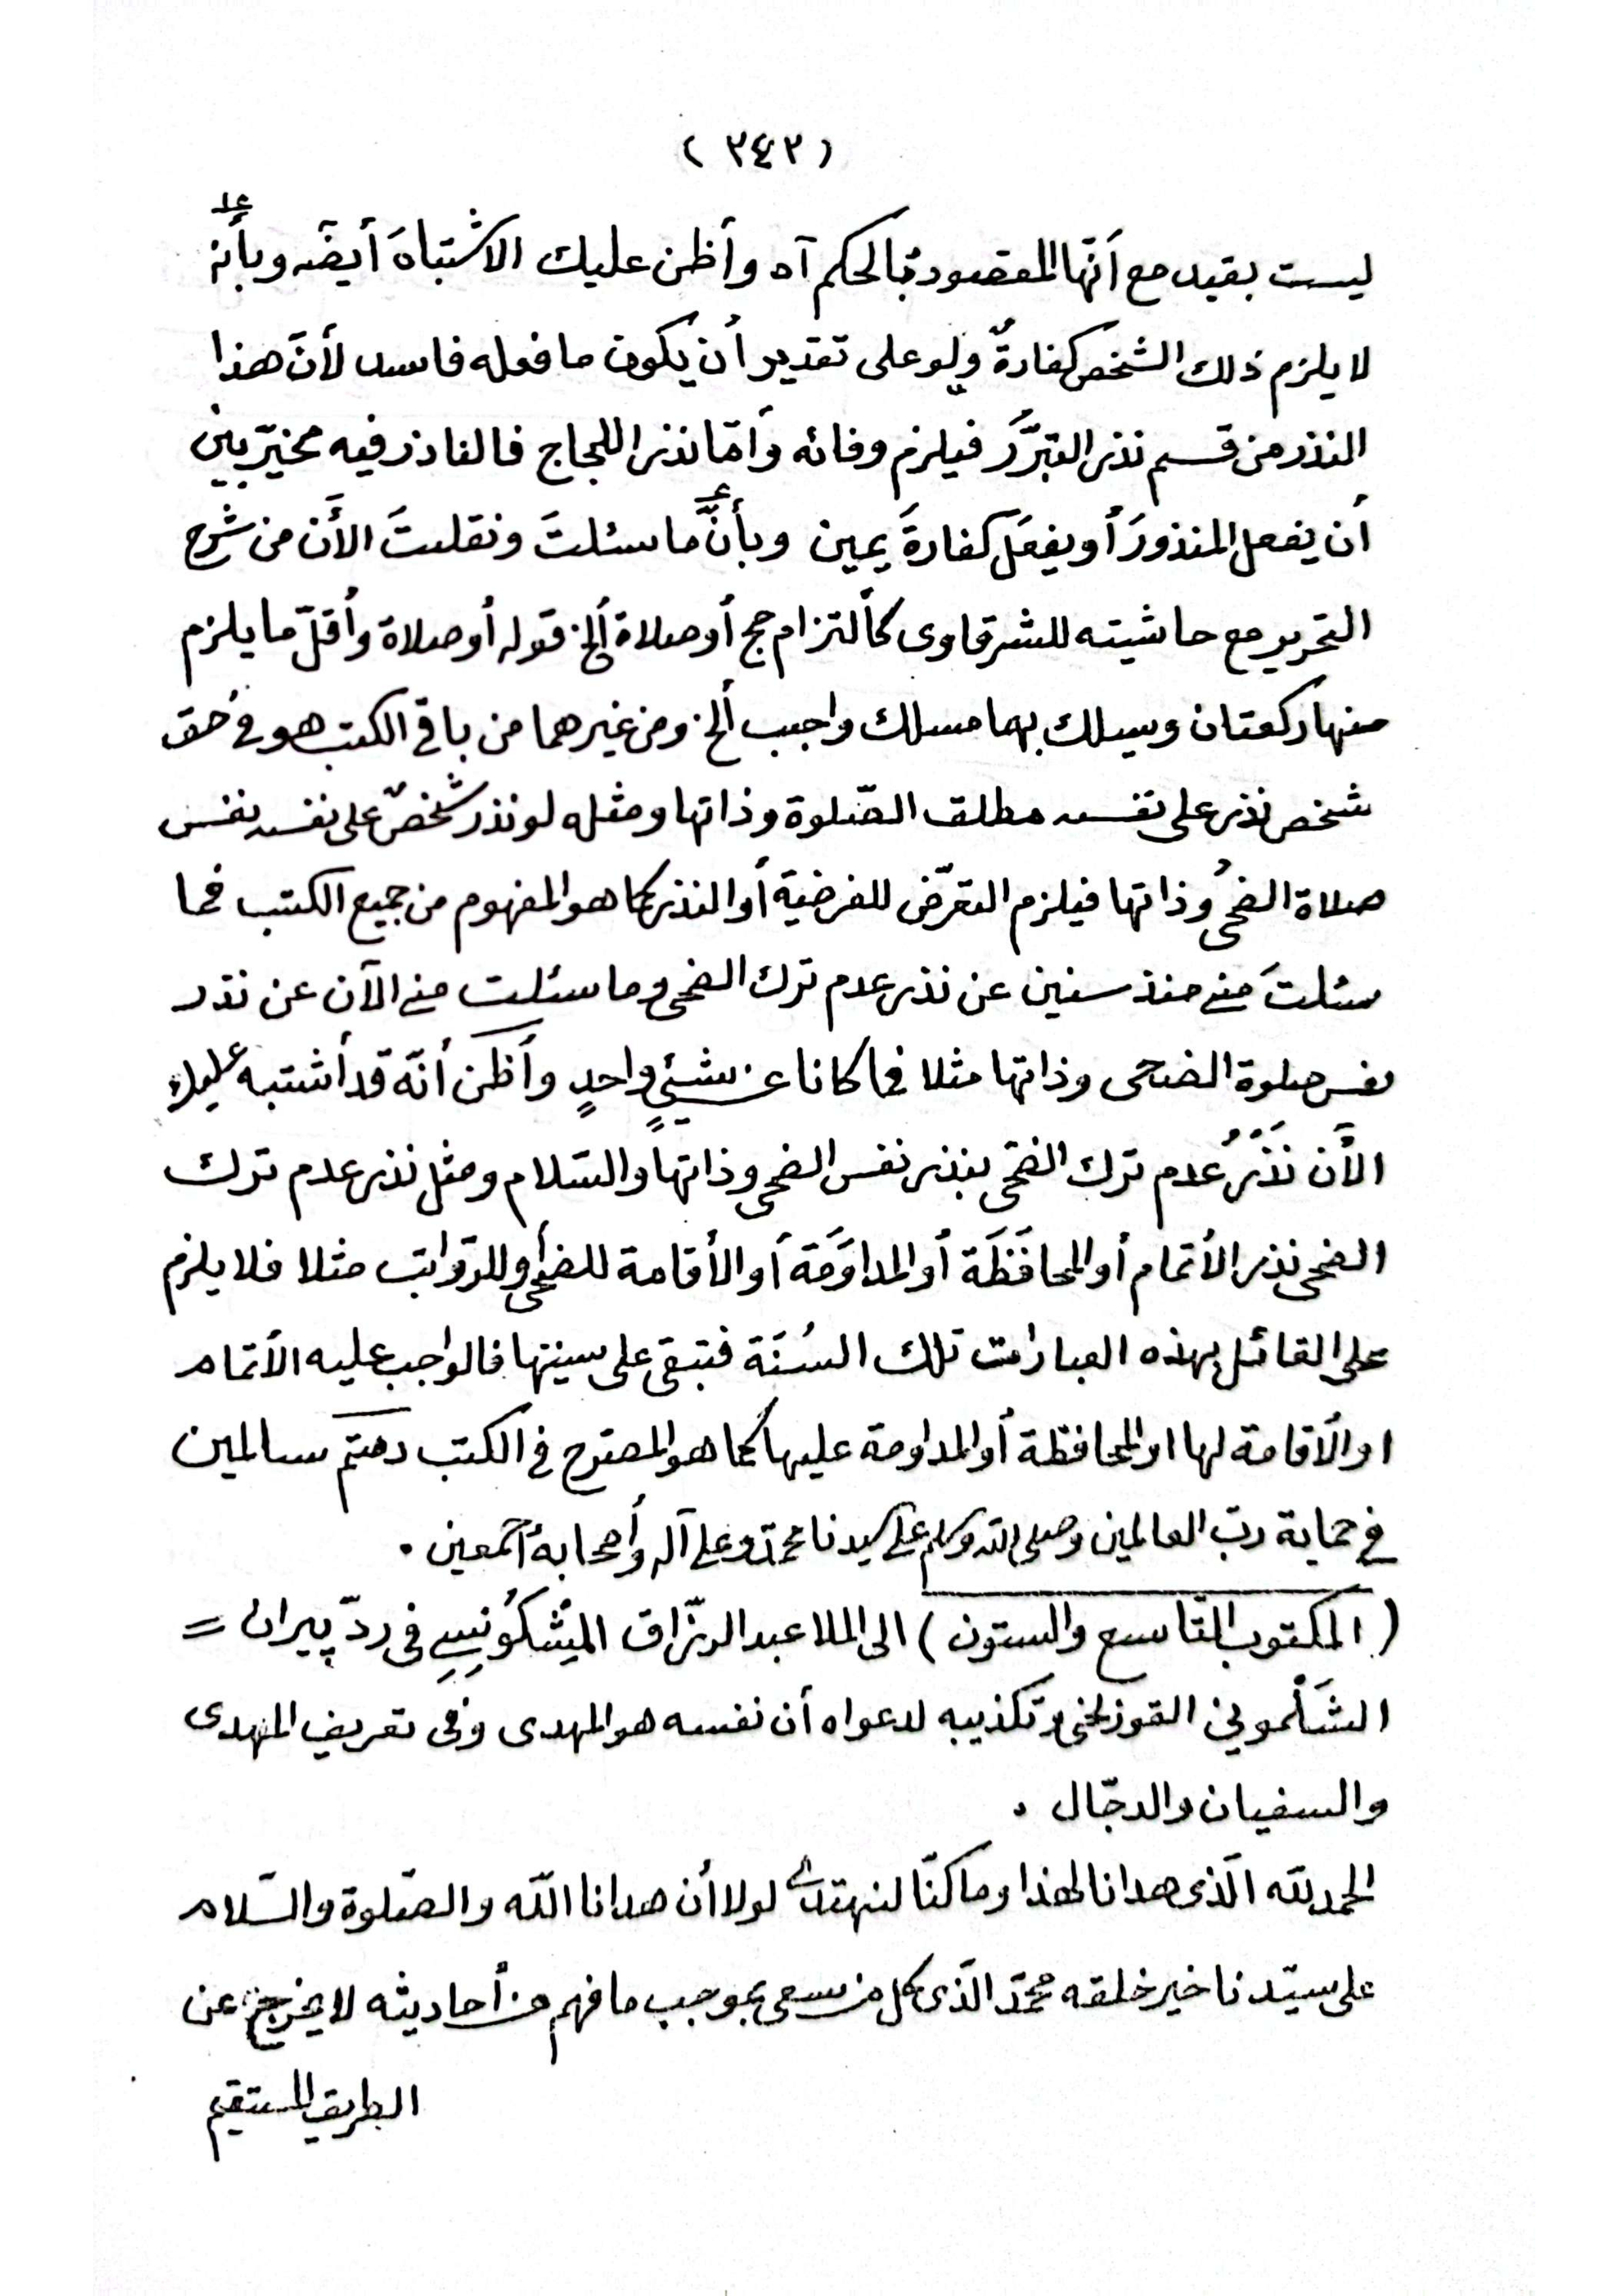 (٣٤٢)
ليست بقيد مع أنّها المقصودة بالحكم آه وأظن عليك الاشتباهَ أيضًا وبأنه
لا يلزم ذلك الشخص كفارةٌ ولو على تقدير أن يكون ما فعله فاسد لأنّ هذا
النذر من قسم نذر التبرَّر فيلزم وفائه وأمّا نذر اللجاج فالناذر فيه مخيّر بين
أن يفعل المنذورَ أو يفعَل كفارةَ يمين وبأنَّ ما سئلتَ ونقلتَ الأن من شرح
التحرير مع حاشيته للشرقاوى كألتزام حج أو صلاة ألخ قوله أو صلاة وأقلّ ما يلزم
منها ركعتان وسيلك بهما مسلك واجب ألخ ومن غيرهما من باقى الكتب هو فى حق
شخص نذر على نفسه مطلق الصّلوة وذاتها ومثله لو نذر شخصٌ على نفسه نفس
صلاة الضحى وذاتها فيلزم التعرّض للفرضية أو النذر كما هو المفهوم من جميع الكتب فما
سئلتَ منى منذ سنين عن نذر عدم ترك الضحى وما سئلت منى الآن عن نذر
نفس صلوة الضحى وذاتها مثلا فما كانا عن شيئٍ واحدٍ وأظن أنّه قد أشتبه عليك
الأن نَذْرُ عدم ترك الضحى بنذر نفس الضحى وذاتها والسّلام ومثل نذر عدم ترك
الضحى نذر الأتمام أو المحافَظَة أو المداوَمَة أو الأقامة للضحى أو للرّواتب مثلا فلا يلزم
على القائل بهذه العبارات تلك السُنَة فتبقى على سينتها فالواجب عليه الأتمام
او الأقامة لها او المحافظة أو المداومة عليها كما هو المصرّح فى الكتب دمتم سالمين
فى حماية ربّ العالمين وصلى الله وسلم على سيدنا محمّد وعلى آله وأصحابه أجمعين .
(المكتوب التّاسع والستون) الى الملا عبد الرزّاق المِشكُونِسِى فى ردّ پيران =
الشَلْمونى القوزلخى وتكذيبه لدعواه أن نفسه هو المهدى وفى تعريف المهدى
والسفيان والدجّال .
الحمد لله الّذى هدانا لهذا وما كنّا لنهتدى لولا أن هدانا اللّه والصّلوة والسّلام
على سيّدنا خير خلقه محمّد الّذى كل من سعى بموجب ما فهم من أحاديثه لا يخرج عن
الطريق المستقيم